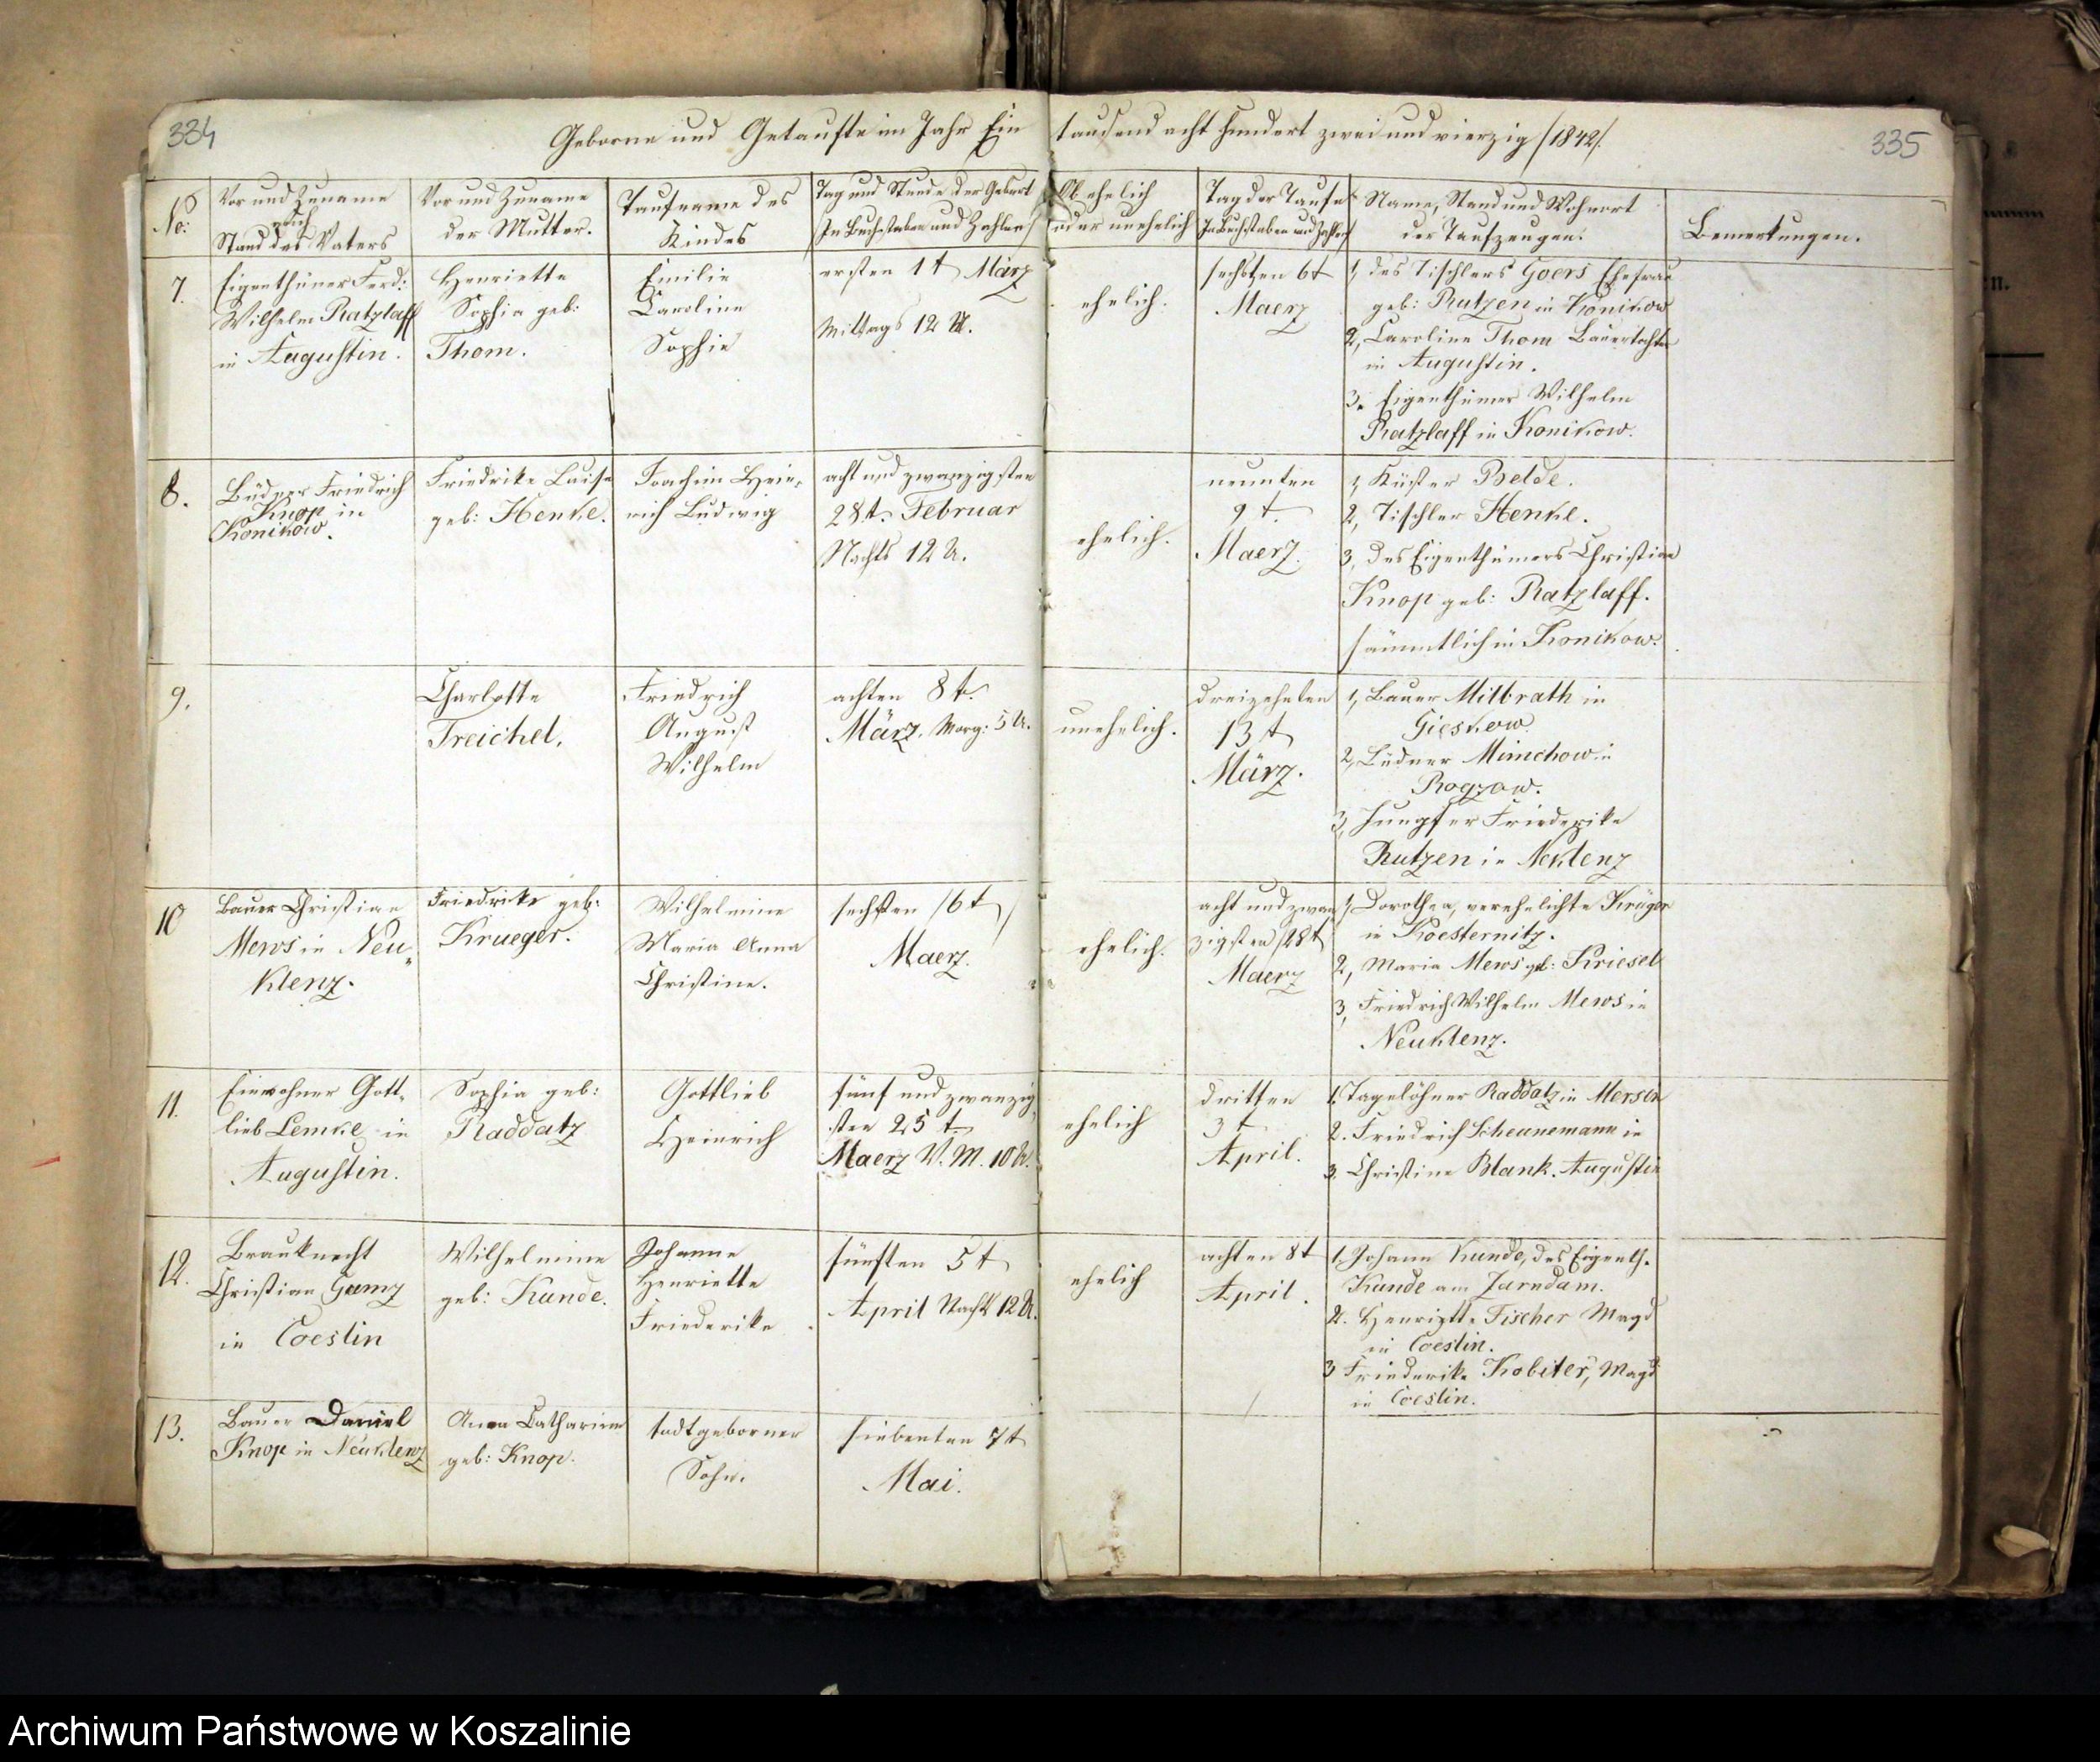 334
Geborne und Getaufte im Jahr Ein
tausend acht hundert zwei und vierzig /1842/.
335
No:
Vor und Zuname
auch
Stand des Vaters
Vor und Zuname
der Mutter.
Taufname des
Kindes
Tag und Stunde der Geburt
/In Buchstaben und Zahlen/
Ob ehelich
oder unehelich
Tag der Taufe
/In Buchstaben und Zahlen/
Name, Stand und Wohnort
der Taufzeugen.
Bemerkungen.
7.
Eigenthümer Ferd:
Wilhelm Ratzlaff
in Augustin.
Henriette
Sophia geb:
Thom.
Emilie
Caroline
Sophie
ersten 1t März
Mittags 12 U.
ehelich.
sechsten 6t
Maerz
1, des Tischlers Goers Ehefrau
geb: Rutzen in Konikow
2, Caroline Thom Bauertochter
in Augustin.
3. Eigenthümer Wilhelm
Ratzlaff in Konikow.
8.
Büdner Friedrich
Knop in
Konikow.
Friedrike Luise
geb: Henke.
Joachim Hein-
rich Ludwig
acht und zwanzigsten
28t. Februar
Nachts 12 U.
ehelich.
neunten
9t.
Maerz.
1, Küster Belde.
2, Tischler Henke.
3, des Eigenthümers Christian
Knop geb: Ratzlaff.
sämmtlich in Konikow.
9.
Charlotte
Treichel.
Friedrich
August
Wilhelm
achten 8t.
März. Morg: 5 U.
unehelich.
dreizehnten
13t
März.
1, Bauer Milbrath in
Gieskow.
2, Büdner Mimchow in
Rogzow.
3, Jungfer Friederike
Rutzen in Neklenz
10
Bauer Christian
Mews in Neu„
klenz.
Friedrike geb:
Krueger.
Wilhelmine
Maria Anna
Christine.
sechsten /6t/
Maerz.
ehelich.
acht und zwan
zigsten /28t
Maerz
1, Dorothea, verehelichte Krüger
in Koesternitz.
2, Maria Mews geb: Kriesel
3, Friedrich Wilhelm Mews in
Neuklenz.
11.
Einwohner Gott„
lieb Lemke in
Augustin.
Sophia geb:
Raddatz
Gottlieb
Heinrich
fünf und zwanzig
sten 25t
Maerz V. M. 10 U.
ehelich
dritten
3t.
April.
1. Tagelöhner Raddatz in Mersin
2. Friedrich Scheunemann in
3. Christine Blank. Augustin
12.
Brauknecht
Christian Gamz
in Coeslin
Wilhelmine
geb: Kunde.
Johanne
Henriette
Friederike
fünften 5t
April Nachts 12 U.
ehelich
achten 8t
April.
1. Johann Kunde, des Eigenth.
Kunde am Jarndam.
2. Henriette Fischer Magd
in Coeslin.
3 Friederike Kobiter, Magd
in Coeslin.
13.
Bauer Daniel
Knop in Neuklenz
Anna Catharina
geb: Knop.
todtgeborner
Sohn.
siebenten 7t
Mai.
Archiwum Państwowe w Koszalinie